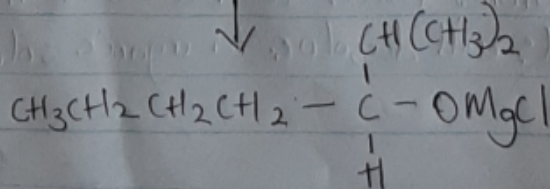 CH(CH3)2
CH3CH2CH2CH2 - C - OMgCl
H